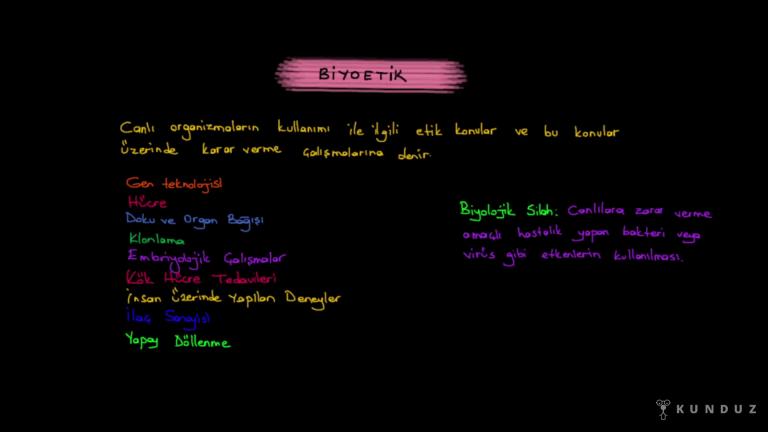 BİYOETİK
Canlı organizmaların kullanımı ile ilgili etik konular ve bu konular
üzerinde karar verme çalışmalarına denir.
Gen teknolojisi
Hücre
Doku ve Organ Bağışı
Klonlama
Embriyolojik Çalışmalar
Kök Hücre Tedavileri
İnsan üzerinde Yapılan Deneyler
İlaç Sanayisi
Yapay Döllenme
Biyolojik Silah: Canlılara zarar verme
amaçlı hastalık yapan bakteri veya
virüs gibi etkenlerin kullanılması.
KUNDUZ